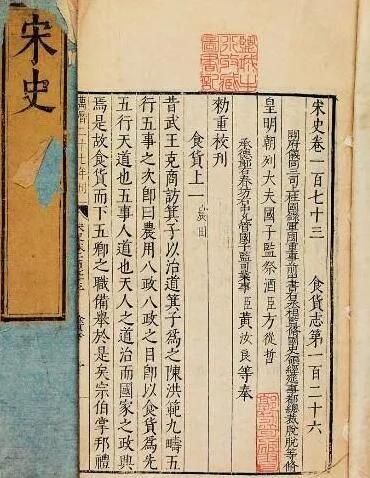 宋史
宋史卷一百七十三 食貨志第一百二十六
開府儀同三司上柱國錄軍國重事前中書右丞相監修國史領經筵事都總裁脫脫等修
皇明朝列大夫國子監祭酒臣方從哲
承德郎右春坊右中允管國子監司業事臣黃汝良等奉
勑重校刊
食貨上一 農田
昔武王克商訪箕子以治道箕子為之陳洪範九疇五
行五事之次即曰農用八政八政之目即以食貨為先
五行天道也五事人道也天人之道治而國家之政興
焉是故食貨而下五卿之職備舉於是矣宗伯掌邦禮
萬曆二十七年刊